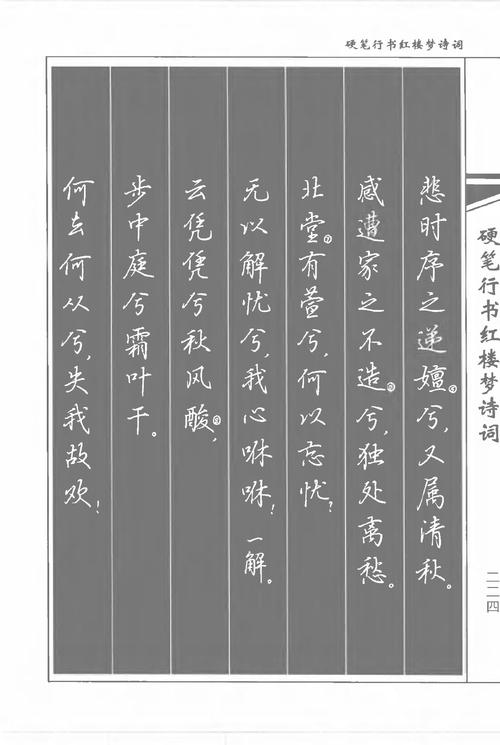 硬笔行书红楼梦诗词
悲时序之递嬗④兮，又属清秋。
感遭家之不造②兮，独处离愁。
北堂⑦有萱兮，何以忘忧？
无以解忧兮，我心咻咻！一解。
云凭凭兮秋风酸②，
步中庭兮霜叶干。
何去何从兮，失我故欢！
硬笔行书红楼梦诗词
二二四